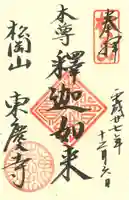 奉拝
平成廿七年
十二月六日
本尊
釋迦如来
松岡山
東慶寺